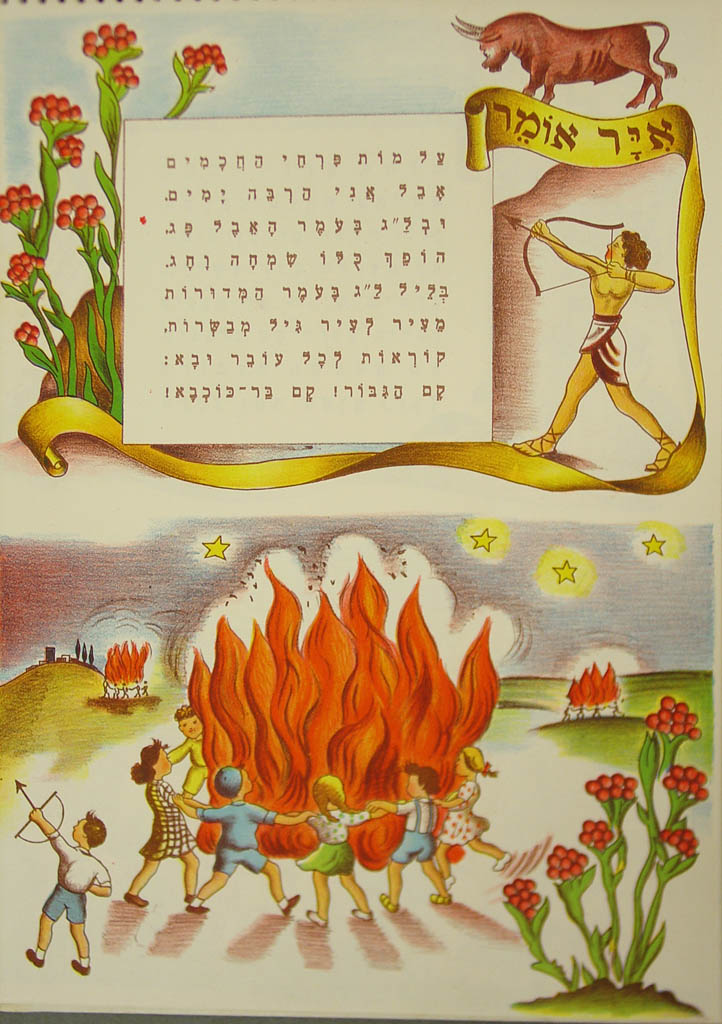 אִיָּר אוֹמֵר
עַל מוֹת פִּרְחֵי הַחֲכָמִים
אָבֵל אֲנִי הַרְבֵּה יָמִים.
וּבְלַ״ג בָּעֹמֶר הָאֵבֶל פָּג,
הוֹפֵךְ כֻּלּוֹ שִׂמְחָה וָחָג.
בְּלֵיל לַ״ג בָּעֹמֶר הַמְּדוּרוֹת
מֵעִיר לְעִיר גִּיל מְבַשְּׂרוֹת,
קוֹרְאוֹת לְכָל עוֹבֵר וּבָא:
קָם הַגִּבּוֹר! קָם בַּר־כּוֹכְבָא!